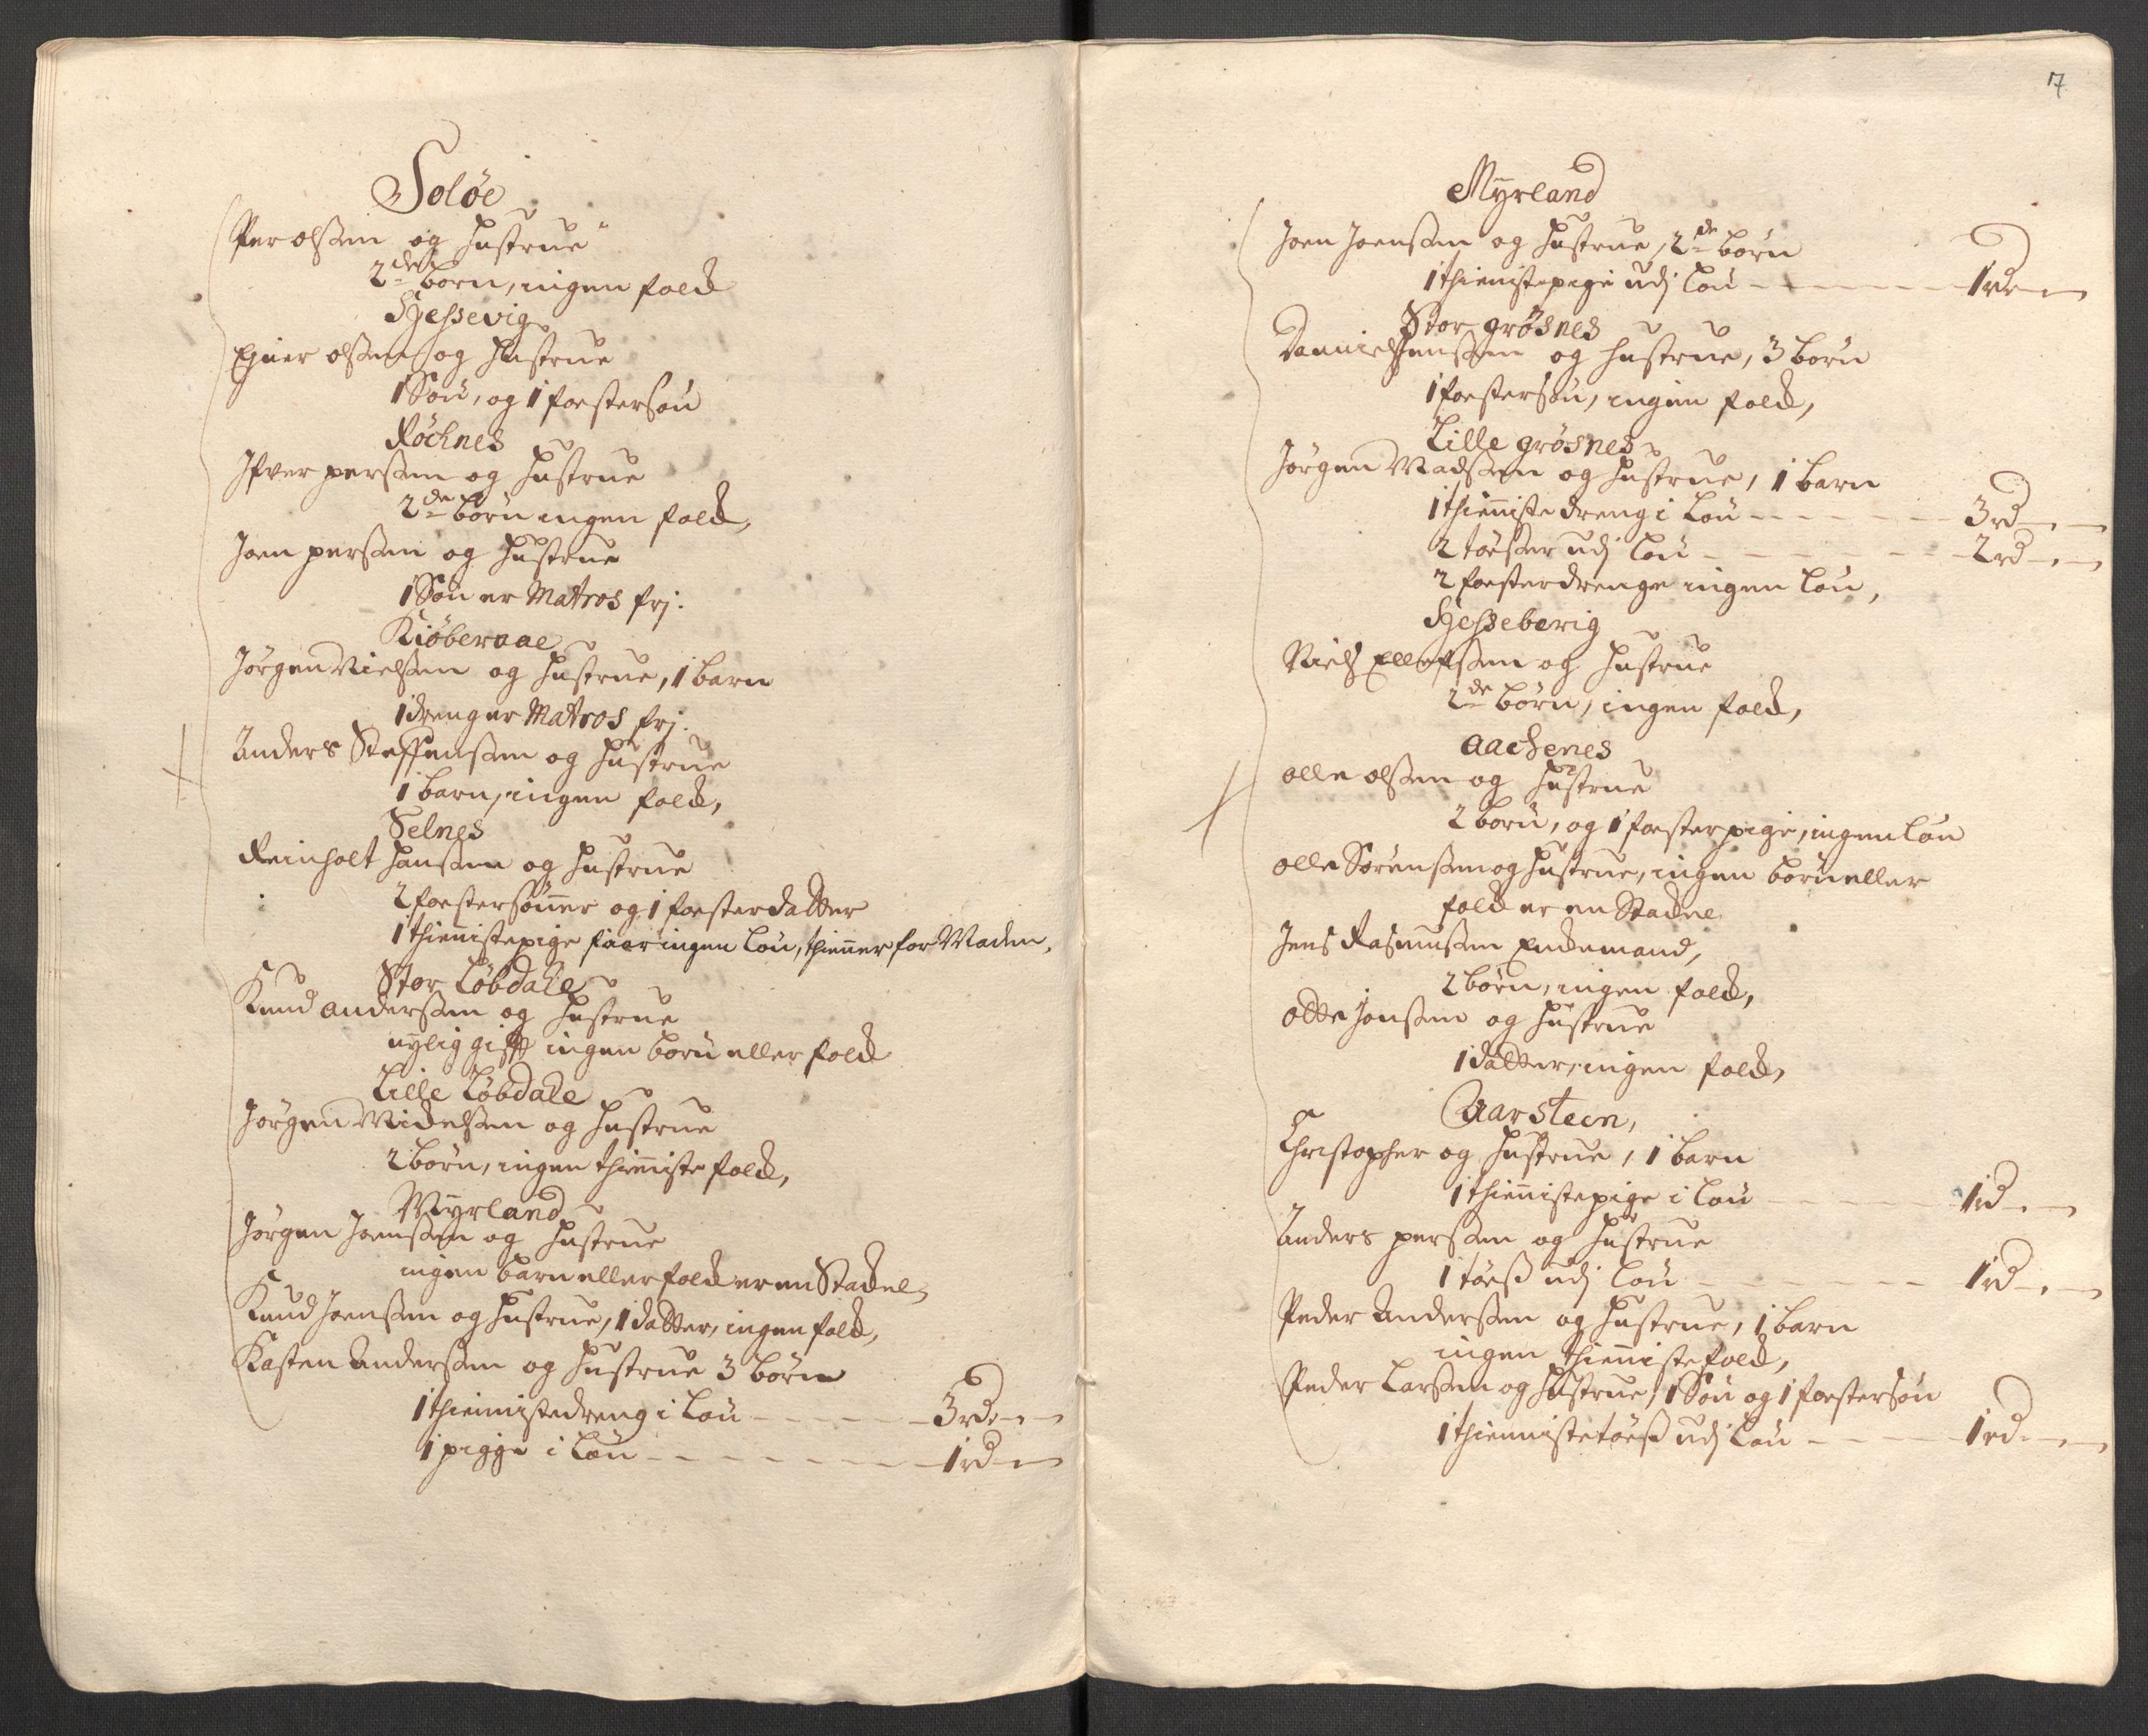 Soløe
Per olßen og hustrue
2de børn, ingen folch
Hessevig
Ejner olßen og hustrue
1 Søn, og 1 fostersøn
Røchnes
Ifver perßen og hustrue
2de børn ingen folch,
Joen perßen og hustrue
1 Søn er Matros frj:
Kiøbervaae
Jørgen Nielßen og hustrue, 1 barn
1 dreng er Matros frj:
Anders Steffenßen og hustrue
1 barn, ingen folch,
Selnes
Reinholt hansen og hustrue
2 fostersønner og 1 fosterdatter
1 thienistepige faar ingen løn, thienner for Maden,
Stor Løbdale
Knud anderßen og hustrue
nylig gifft ingen børn eller folch
Lille Løbdale
Jørgen Michelßen og hustrue
2 børn, ingen thienniste folch,
Myrland
Jørgen Joenßen og hustrue
ingen barn eller folch er en Stachel,
Knud Joenßen og hustrue, 1 datter, ingen folch,
Kasten Anderßen og hustrue 3 børn
1 thiennistedreng i løn - - - - 3 rd - -
1 pigge i løn - - - - 1 rd - -
7
Myrland
Joen Joenßen og hustrue, 2de børn
1 thienistepige udj løn - - - - 1 rd - -
Stor grøsnes
Danniel Jenßen og hustrue, 3 børn
1 fostersøn, ingen folch,
Lille grøsnes
Jørgen Madßen og hustrue, 1 barn
1 thienniste dreng i løn - - - - 3 rd - -
2 tøeßer udj løn - - - - 2 rd - -
2 fosterdrenge ingen løn,
Hesseberig
Niels Ellefßen og hustrue
2de børn, ingen folch,
Aachenes
olle olßen og hustrue
2 børn, og 1 fosterpige, ingen løn
olle Sørenßen og hustrue, ingen børn eller
folch er en Stachel
Jens Rasmusßen Enchemand,
2 børn, ingen folch,
otte Jonßen og hustrue
1 datter, ingen folch,
Aarsteen,
Christopher og hustrue, 1 barn
1 thiennistepige i løn - - - - 1 rd - -
Anders perßen og hustrue
1 tøeß udj løn - - - - 1 rd - -
Peder Anderßen og hustrue, 1 barn
ingen thiennistefolch,
Peder Larßen og hustrue, 1 Søn og 1 fostersøn
1 thiennistetøeß udj løn - - - - 1 rd - -